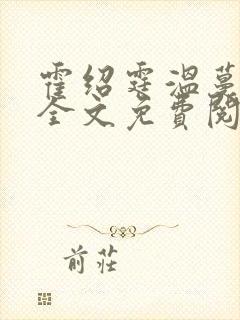 霍绍霆温蔓
全文免费阅
前莊